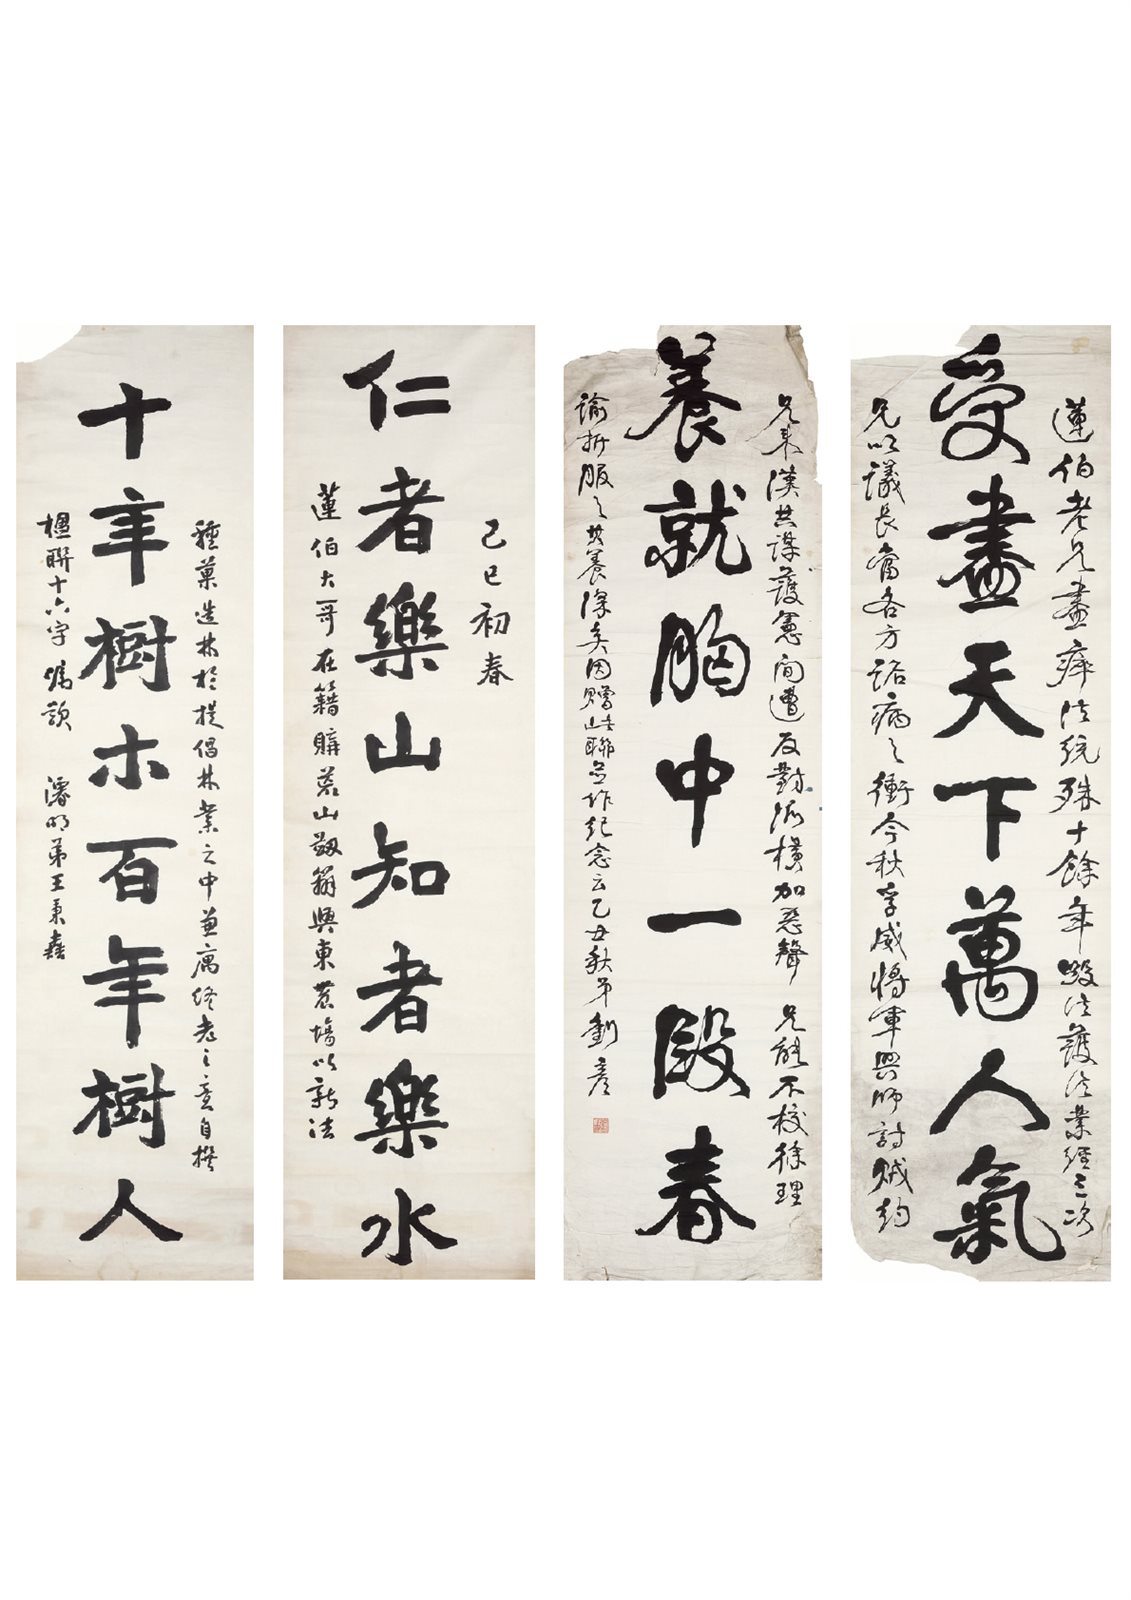 蓮伯老兄盡瘁法統殊十餘年毀法護法業經三次
受盡天下萬人氣
兄以議長當各方詬病之衝今秋孚威將軍興師討賊約
兄來漢共謀護憲間遭反對派橫加惡聲 兄能不校徐理
養就胸中一段春
諭折服之其養深矣因贈此聯并作紀念云乙丑秋弟劉彥
己巳初春
仁者樂山知者樂水
蓮伯大哥在籍購荒山剏辦興東農場以新法
種菓造林於提倡林業之中並寓終老之意自撰
十年樹木百年樹人
楹聯十六字囑題 濬明弟王秉